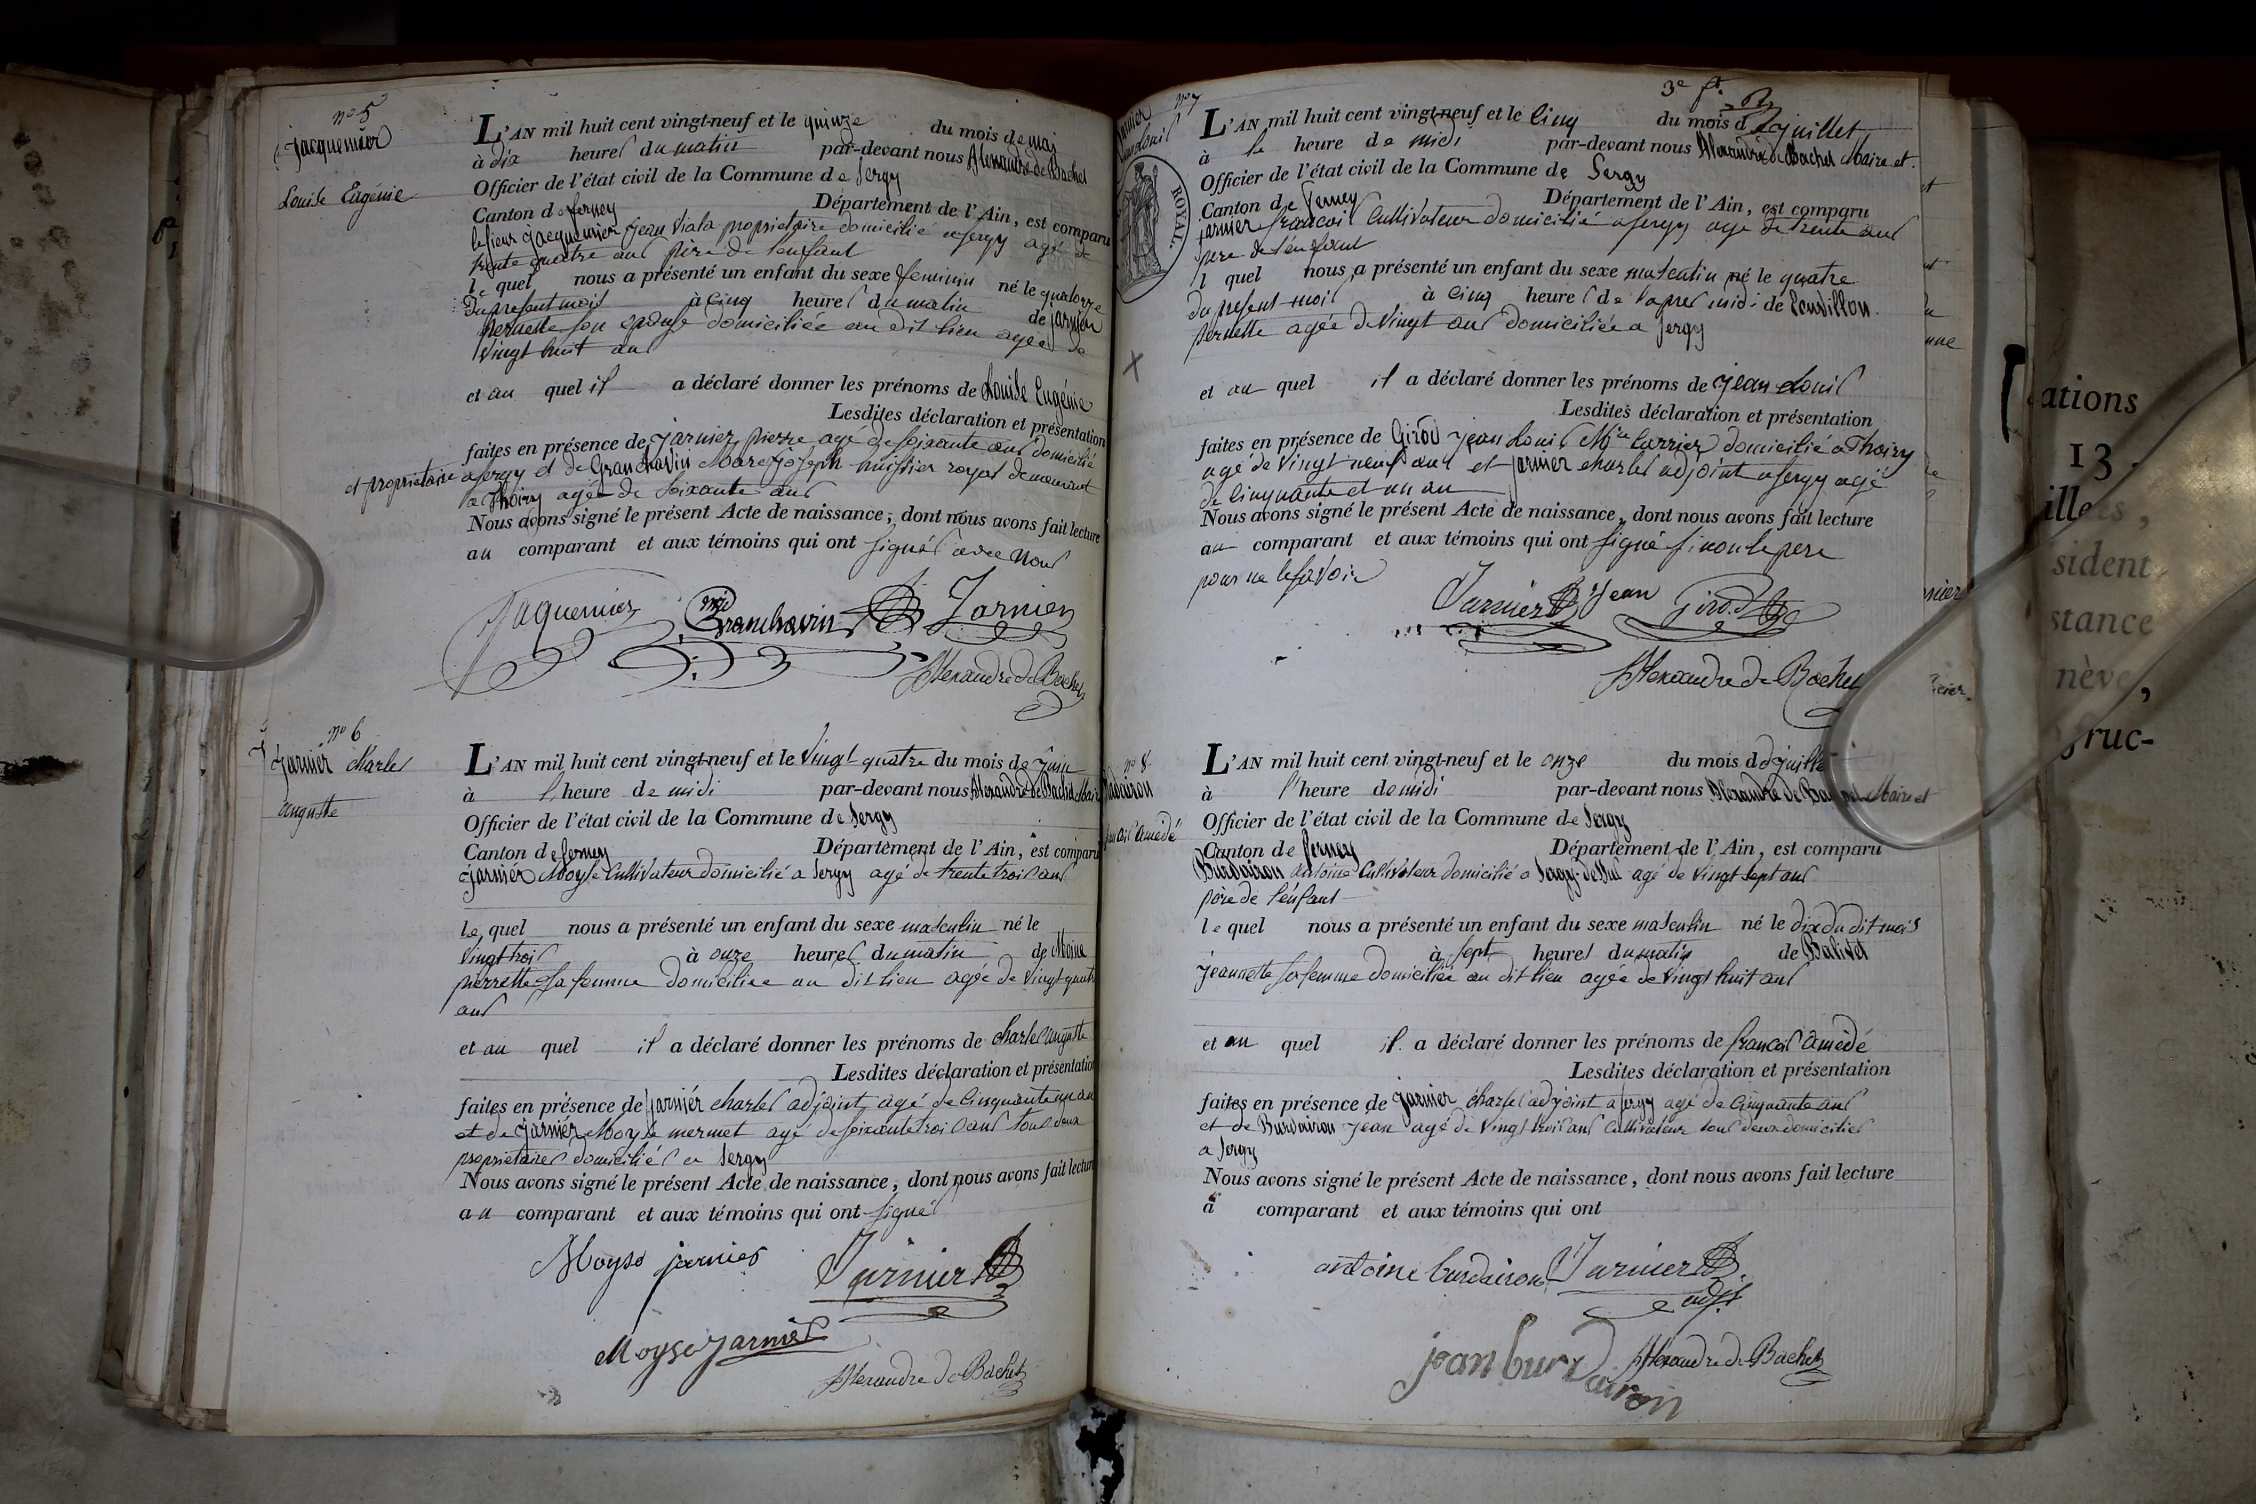 no 5
Jacquemier
Louise Eugénie
L'AN mil huit cent vingt-neuf et le quinze du mois de mai
à dix heures du matin par-devant nous Alexandre de Bachet
Officier de l'état civil de la Commune de Sergy
Canton de ferney Département de l'Ain, est comparu
le sieur Jacquemier jean proprietaire domicilié a sergy agé de
trente quatre ans père de l'enfant
le quel nous a présenté un enfant du sexe feminin né le quatorze
Du present mois à cinq heures du matin de jarnier
pernette son epouse domiciliée au dit lieu agée de
vingt huit ans
et au quel il a déclaré donner les prénoms de Louise Eugénie
Lesdites déclaration et présentation
faites en présence de jarnier pierre agé de soixante ans domicilié
et proprietaire a sergy et de Granchavin Marc joseph huissier royal demeurant
a Thoiry agé de soixante ans
Nous avons signé le présent Acte de naissance, dont nous avons fait lecture
au comparant et aux témoins qui ont signés avec nous
Jaquemier Granchavin Jarnier
Alexandre de Bachet
no 6
Jarnier charles
auguste
L'AN mil huit cent vingt-neuf et le vingt quatre du mois de juin
à l'heure de midi par-devant nous Alexandre de Bachet Maire
Officier de l'état civil de la Commune de Sergy
Canton de ferney Département de l'Ain, est comparu
jarnier Moyse Cultivateur domicilié a Sergy agé de trente trois ans
le quel nous a présenté un enfant du sexe masculin né le
vingt trois à onze heures du matin de Moine
pierrette sa femme domiciliée au dit lieu agée de vingt quatre
ans
et au quel il a déclaré donner les prénoms de charles auguste
Lesdites déclaration et présentation
faites en présence de jarnier charles adjoint agé de cinquante un ans
et de jarnier Moyse mermet agé de soixante trois ans tous deux
proprietaires domiciliés a Sergy
Nous avons signé le présent Acte de naissance, dont nous avons fait lecture
au comparant et aux témoins qui ont signé
Moyse jarnier Jarnier
Moyse Jarnier
Alexandre de Bachet
3e
no 7
Jarnier
jean Louis
ROYAL.
L'AN mil huit cent vingt-neuf et le cinq du mois de juillet
à le heure de midi par-devant nous Alexandre de Bachet Maire et
Officier de l'état civil de la Commune de Sergy
Canton de ferney Département de l'Ain, est comparu
jarnier francois Cultivateur domicilié a sergy agé de trente ans
pere de l'enfant
l quel nous a présenté un enfant du sexe masculin né le quatre
du present mois à cinq heures de l'apres midi de
pernette agée de vingt ans domiciliée a sergy
et au quel il a déclaré donner les prénoms de jean Louis
Lesdites déclaration et présentation
faites en présence de Girod jean Louis domicilié a Thoiry
agé de vingt neuf ans et jarnier charles adjoint a sergy agé
de cinquante et un an
Nous avons signé le présent Acte de naissance, dont nous avons fait lecture
au comparant et aux témoins qui ont signé sinon le pere
pour ne le savoir
Jarnier jean Girod
Alexandre de Bachet
no 8
Burdairon
francois amedé
L'AN mil huit cent vingt-neuf et le onze du mois de juillet
à l'heure de midi par-devant nous Alexandre de Bachet Maire et
Officier de l'état civil de la Commune de Sergy
Canton de ferney Département de l'Ain, est comparu
Burdairon antoine Cultivateur domicilié a Sergy-dessus agé de vingt sept ans
père de l'enfant
le quel nous a présenté un enfant du sexe masculin né le dix du dit mois
à sept heures du matin de Balivet
jeannette sa femme domiciliée au dit lieu agée de vingt huit ans
et au quel il a déclaré donner les prénoms de francois amédé
Lesdites déclaration et présentation
faites en présence de jarnier charles adjoint a sergy agé de cinquante ans
et de Burdairon jean agé de vingt trois ans cultivateur tous deux domiciliés
a sergy
Nous avons signé le présent Acte de naissance, dont nous avons fait lecture
à comparant et aux témoins qui ont
antoine burdairon Jarnier
adjt
jean burdairon Alexandre de Bachet
ations
13.
illets,
sident
stance
nève,
fruc-